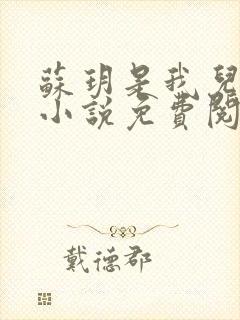 蘇玥是我兒
小說免費閱
戴德郡